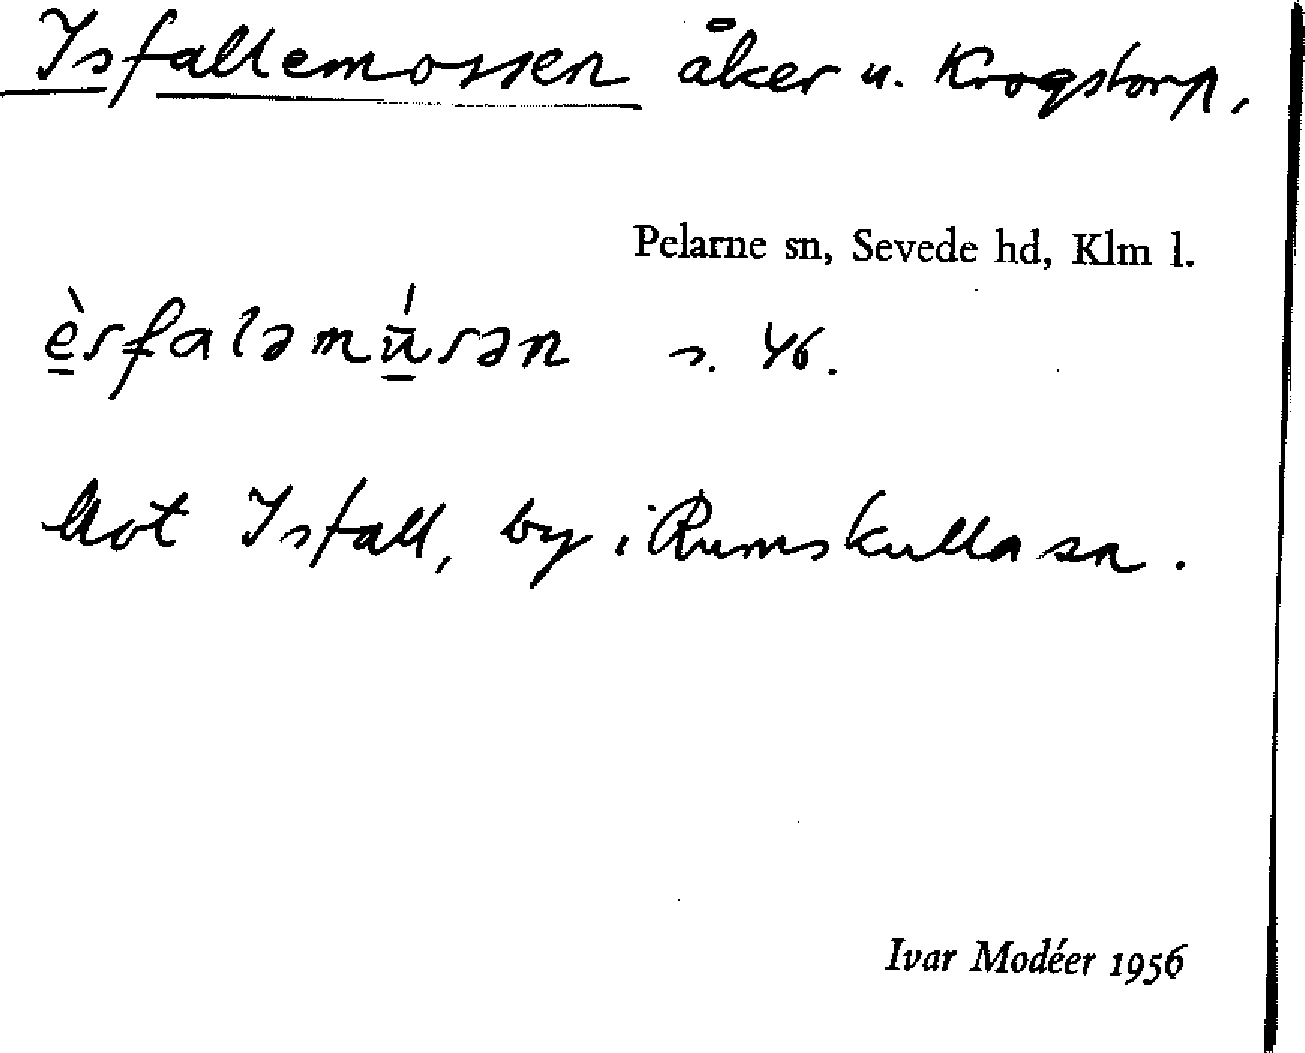 Isfallemossen åker u. Krogstorp,
Pelarne sn, Sevede hd, Klm l.
è̱sfaləmú̱sən s. 46.
Mot Isfall, by i Rumskulla sn.
Ivar Modéer 1956